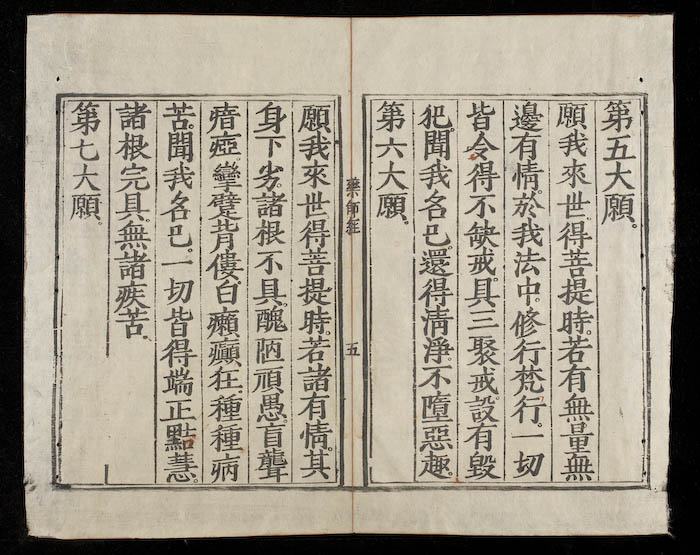 第五大願。
願我來世得菩提時。若有無量無
邊有情。於我法中。修行梵行。一切
皆令得不缺戒。具三聚戒。設有毀
犯。聞我名已。還得清淨。不墮惡趣。
第六大願。
藥師經 五
願我來世得菩提時。若諸有情。其
身下劣。諸根不具。醜陋頑愚。盲聾
瘖瘂。攣躄背僂。白癩癲狂。種種病
苦。聞我名已。一切皆得端正黠慧。
諸根完具。無諸疾苦。
第七大願。